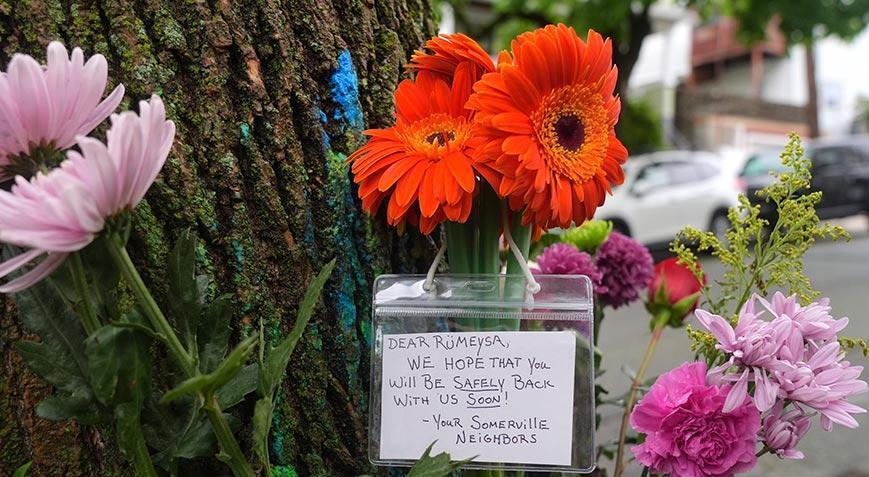 DEAR RÜMEYSA,
WE HOPE THAT YOU
WILL BE SAFELY BACK
WITH US SOON!
- YOUR SOMERVILLE
NEIGHBORS